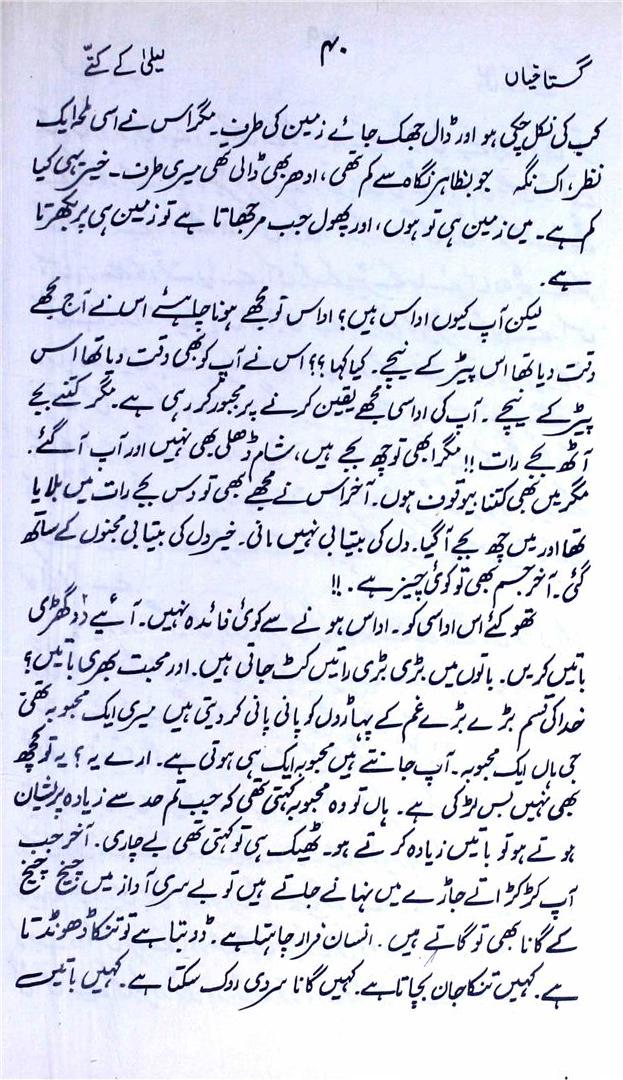 گستاخیاں
۴۰
لیلیٰ کے کتّے
کب کی نکل چکی ہو اور ڈال جھک جائے زمین کی طرف۔ مگر اس نے اسی لمحہ ایک
نظر، اک نگہ جو بظاہر نگاہ سے کم تھی، ادھر بھی ڈالی تھی میری طرف۔ خیر یہی کیا
کم ہے۔ میں زمین ہی تو ہوں، اور پھول جب مرجھاتا ہے تو زمین ہی پر بکھرتا
ہے۔
لیکن آپ کیوں اداس ہیں؟ اداس تو مجھے ہونا چاہئے اس نے آج مجھے
وقت دیا تھا اس پیڑ کے نیچے۔ کیا کہا؟؟ اس نے آپ کو بھی وقت دیا تھا اس
پیڑ کے نیچے۔ آپ کی اداسی مجھے یقین کرنے پر مجبور کر رہی ہے۔ مگر کتنے بجے
آٹھ بجے رات!! مگر ابھی تو چھ بجے ہیں، شام ڈھلی بھی نہیں اور آپ آ گئے۔
مگر میں بھی کتنا بیوقوف ہوں۔ آخر اس نے مجھے بھی تو دس بجے رات میں بلایا
تھا اور میں چھ بجے آ گیا۔ دل کی بیتابی نہیں مانی۔ خیر دل کی بیتابی مجنوں کے ساتھ
گئی۔ آخر جسم بھی تو کوئی چیز ہے۔ !!
تھوکئے اس اداسی کو۔ اداس ہونے سے کوئی فائدہ نہیں۔ آئیے دو گھڑی
باتیں کریں۔ باتوں میں بڑی بڑی راتیں کٹ جاتی ہیں۔ اور محبت بھری باتیں؟
خدا کی قسم بڑے بڑے غم کے پہاڑوں کو پانی پانی کر دیتی ہیں میری ایک محبوبہ تھی
جی ہاں ایک محبوبہ۔ آپ جانتے ہیں محبوبہ ایک ہی ہوتی ہے۔ ارے یہ؟ یہ تو کچھ
بھی نہیں بس لڑکی ہے۔ ہاں تو وہ محبوبہ کہتی تھی کہ جب تم حد سے زیادہ پریشان
ہوتے ہو تو باتیں زیادہ کرتے ہو۔ ٹھیک ہی تو کہتی تھی بے چاری۔ آخر جب
آپ کڑکڑاتے جاڑے میں نہانے جاتے ہیں تو بے سری آواز میں چیخ چیخ
کے گانا بھی تو گاتے ہیں۔ انسان فرار چاہتا ہے۔ ڈوبتا ہے تو تنکا ڈھونڈتا
ہے۔ کہیں تنکا جان بچاتا ہے۔ کہیں گانا سردی روک سکتا ہے۔ کہیں باتیں